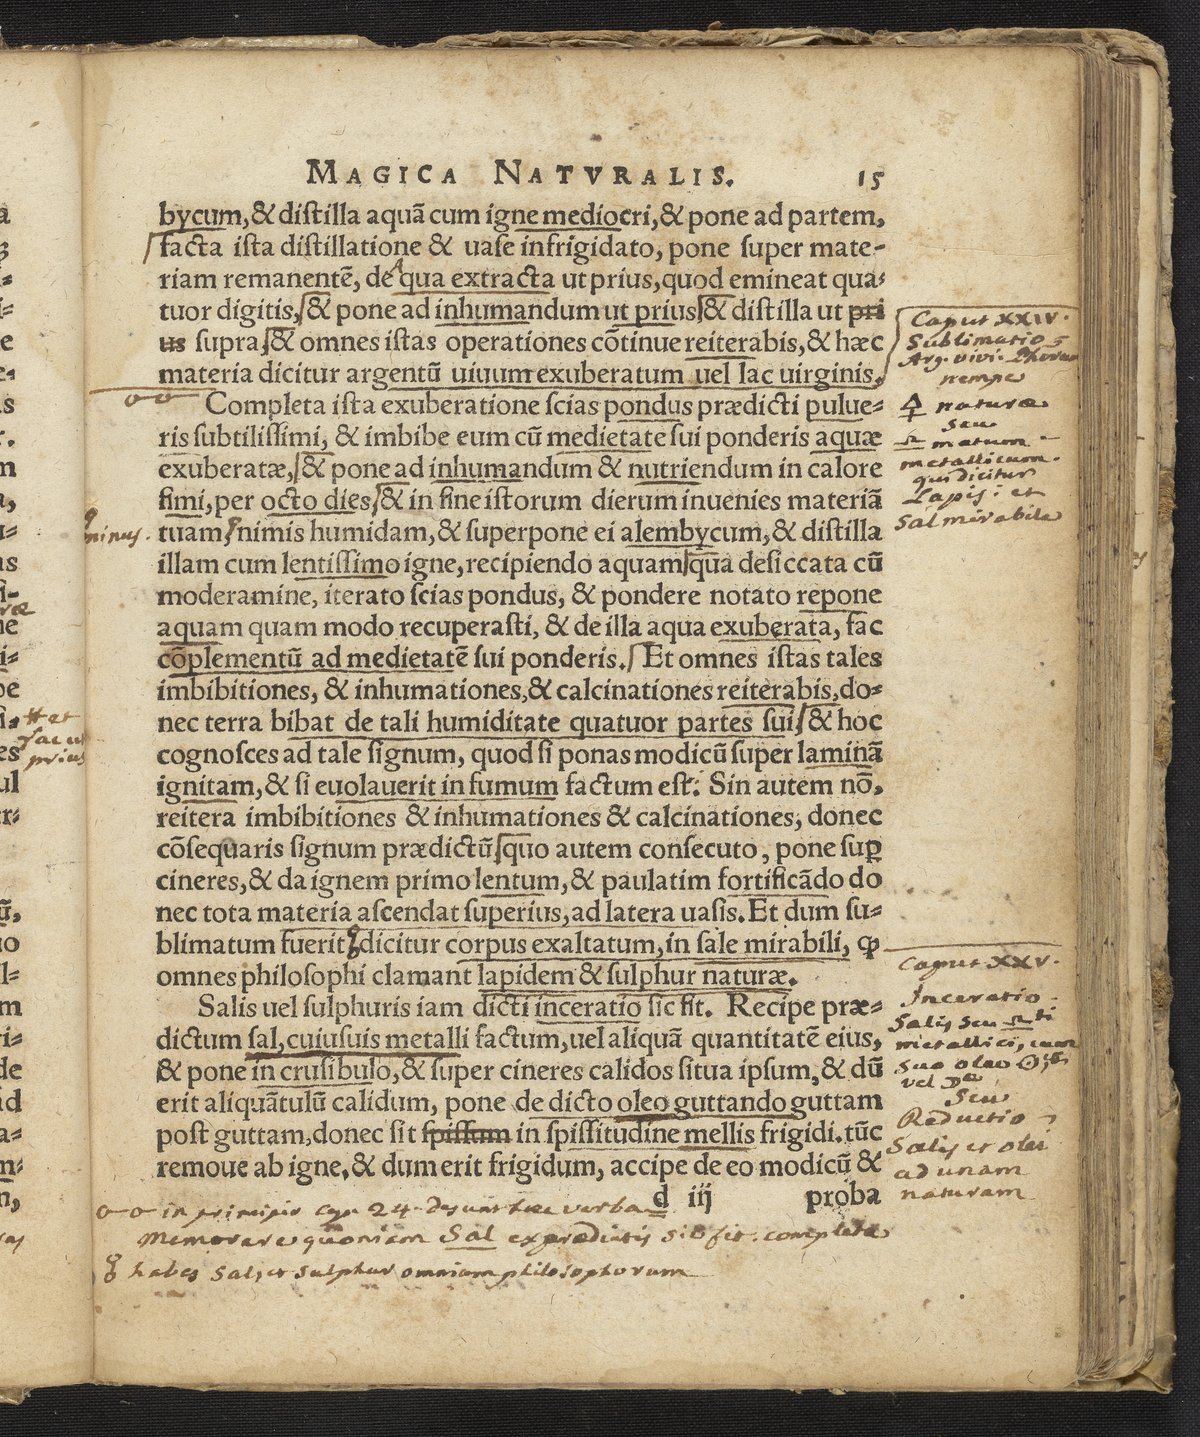 MAGICA NATVRALIS. 15
bycum, & distilla aquã cum igne mediocri, & pone ad partem,
facta ista distillatione & uase infrigidato, pone super mate-
riam remanentẽ, de qua extracta ut prius, quod emineat qua-
tuor digitis, & pone ad inhumandum ut prius & distilla ut pri
us supra & omnes istas operationes cõtinue reiterabis, & hæc
materia dicitur argentũ uiuum exuberatum uel lac uirginis.
Completa ista exuberatione scias pondus prædicti pulue-
ris subtilissimi, & imbibe eum cũ medietate sui ponderis aquæ
exuberatæ, & pone ad inhumandum & nutriendum in calore
fimi, per octo dies & in fine istorum dierum inuenies materiã
tuam nimis humidam, & superpone ei alembycum, & distilla
illam cum lentissimo igne, recipiendo aquam qua desiccata cũ
moderamine, iterato scias pondus, & pondere notato repone
aquam quam modo recuperasti, & de illa aqua exuberata, fac
cõplementũ ad medietatẽ sui ponderis. Et omnes istas tales
imbibitiones, & inhumationes, & calcinationes reiterabis, do-
nec terra bibat de tali humiditate quatuor partes sui & hoc
cognosces ad tale signum, quod si ponas modicũ super laminã
ignitam, & si euolauerit in fumum factum est. Sin autem nõ,
reitera imbibitiones & inhumationes & calcinationes, donec
cõsequaris signum prædictũ quo autem consecuto, pone suꝑ
cineres, & da ignem primo lentum, & paulatim fortificãdo do
nec tota materia ascendat superius, ad latera uasis. Et dum su-
blimatum fuerit dicitur corpus exaltatum, in sale mirabili, ꝙ
omnes philosophi clamant lapidem & sulphur naturæ.
Salis uel sulphuris iam dicti inceratio sic fit. Recipe præ-
dictum sal, cuiusuis metalli factum, uel aliquã quantitatẽ eius,
& pone in crusibulo, & super cineres calidos situa ipsum, & dũ
erit aliquãtulũ calidum, pone de dicto oleo guttando guttam
post guttam, donec sit spissum in spissitudine mellis frigidi. tũc
remoue ab igne, & dum erit frigidum, accipe de eo modicũ &
d iij proba
Caput XXIV.
Sublimatio
Arg. vivi. Phorum
nempe
🜍 naturæ
seu
♎ maturum
metallicum.
qui dicitur
Lapis: et
Sal mirabile
minus.
Caput XXV.
Inceratio
Salis seu ♎ti
metallici, cum
suo oleo ☉is
vel ☽æ
Seu
Reductio
Salis et olei
ad unam
naturam
in principio cap. 24. desunt hæc verba
Memorare quoniam Sal ex prædictis sic fit. completa
habes Sal, et Sulphur omnium philosophorum